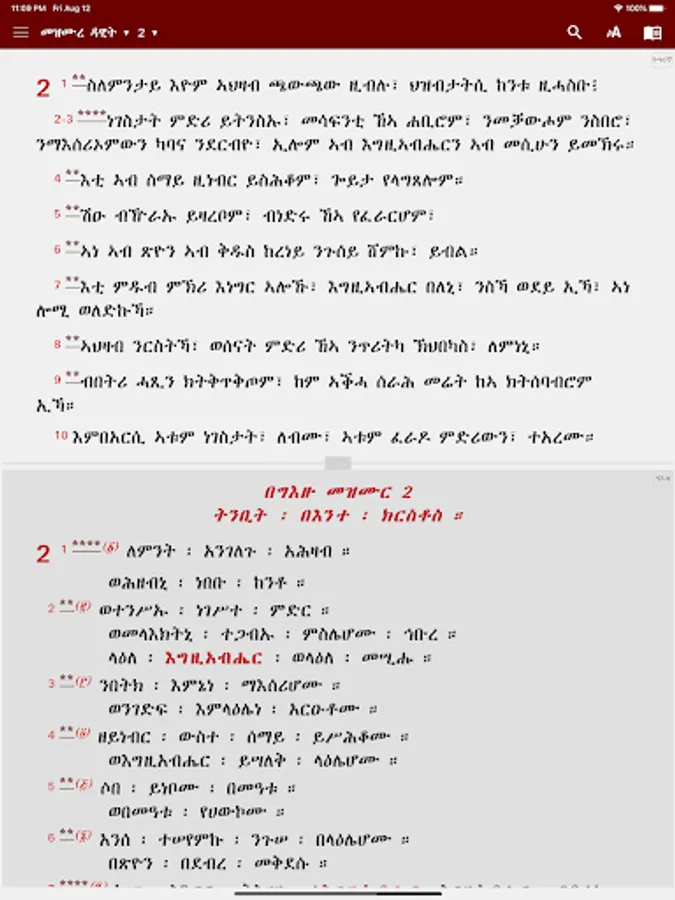 11:09 PM Fri Aug 12 100%
መዝሙረ ዳዊት 2
2 1 **ስለምንታይ እዮም ኣህዛብ ጫውጫው ዚብሉ፣ ህዝብታትሲ ከንቱ ዚሓስቡ፧
2-3 ****ነገስታት ምድሪ ይትንስኡ፣ መሳፍንቲ ኸኣ ሐቢሮም፣ ንመቓውሖም ንስበሮ፣
ንማእሰሪኦምውን ካባና ንደርብዮ፣ ኢሎም ኣብ እግዚኣብሔርን ኣብ መሲሁን ይመኽሩ።
4 **እቲ ኣብ ሰማይ ዚነብር ይስሕቆም፣ ጐይታ የላግጸሎም።
5 **ሽዑ ብዅራኡ ይዛረቦም፣ ብነድሩ ኸኣ የፈራርሆም፣
6 **ኣነ ኣብ ጽዮን ኣብ ቅዱስ ከረነይ ንጉሰይ ሸምኩ፣ ይብል።
7 **እቲ ምዱብ ምኽሪ እነግር ኣሎኹ፣ እግዚኣብሔር በለኒ፣ ንስኻ ወደይ ኢኻ፣ ኣነ
ሎሚ ወለድኩኻ።
8 **ኣህዛብ ንርስትኻ፣ ወሰናት ምድሪ ኸኣ ንጥሪትካ ኽህበካስ፣ ለምነኒ።
9 **ብበትሪ ሓጺን ክትቅጥቅጦም፣ ከም ኣቕሓ ሰራሕ መሬት ከኣ ክትሰባብሮም
ኢኻ።
10 እምበኣርሲ ኣቱም ነገስታት፣ ለብሙ፣ ኣቱም ፈራዶ ምድሪውን፣ ተአረሙ።
በግእዙ መዝሙር 2
ትንቢት ፡ በእንተ ፡ ክርስቶስ ።
2 1 ****(፩) ለምንት ፡ አንገለጉ ፡ አሕዛብ ።
ወሕዘብኒ ፡ ነበቡ ፡ ከንቶ ።
2 **(፪) ወተንሥኡ ፡ ነገሥተ ፡ ምድር ።
ወመላእክትኒ ፡ ተጋብኡ ፡ ምስሌሆሙ ፡ ኅቡረ ።
ላዕለ ፡ እግዚአብሔር ፡ ወላዕለ ፡ መሢሑ ።
3 **(፫) ንበትክ ፡ እምኔነ ፡ ማእሰሪሆሙ ።
ወንገድፍ ፡ እምላዕሌነ ፡ አርዑቶሙ ።
4 **(፬) ዘይነብር ፡ ውስተ ፡ ሰማይ ፡ ይሥሕቆሙ ።
ወእግዚአብሔር ፡ ይሣለቅ ፡ ላዕሌሆሙ ።
5 **(፭) ሶበ ፡ ይነቦሙ ፡ በመዓቱ ።
ወበመዓቱ ፡ የሀውኮሙ ።
6 **(፮) አንሰ ፡ ተሠየምኩ ፡ ንጉሠ ፡ በላዕሌሆሙ ።
በጽዮን ፡ በደብረ ፡ መቅደሱ ።